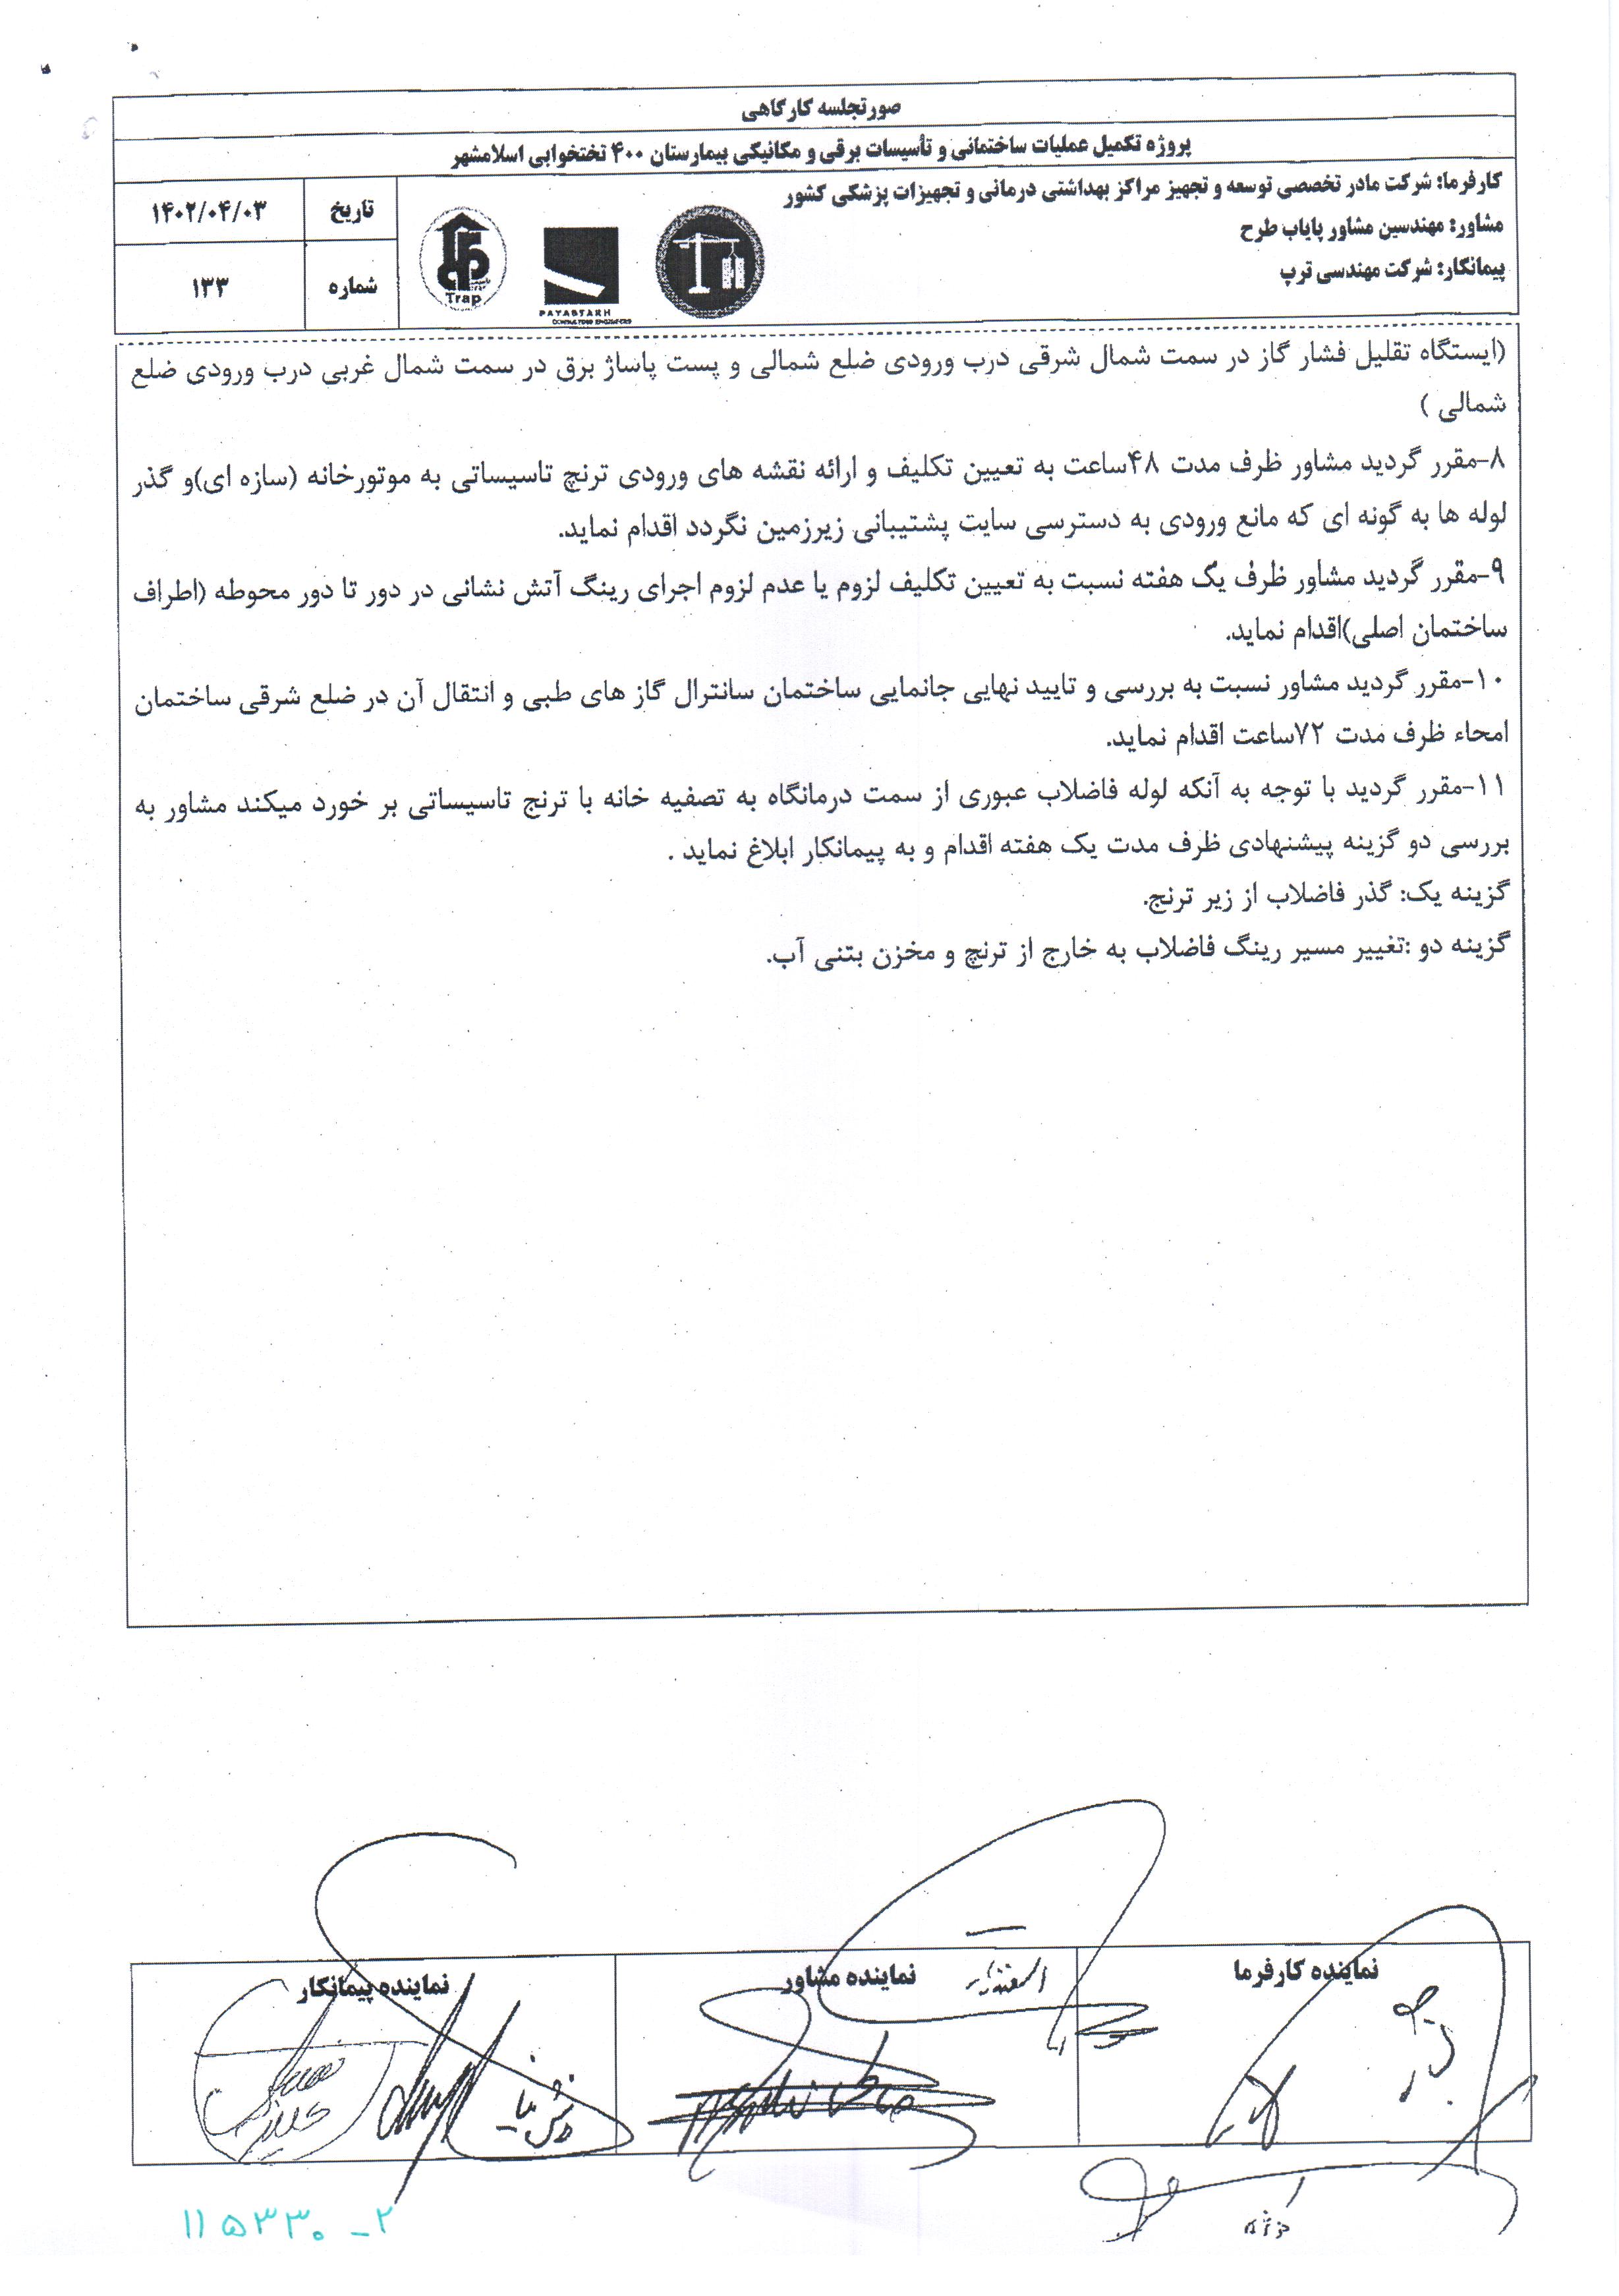 صورتجلسه کارگاهی
پروژه تکمیل عملیات ساختمانی و تأسیسات برقی و مکانیکی بیمارستان ۴۰۰ تختخوابی اسلامشهر
کارفرما: شرکت مادر تخصصی توسعه و تجهیز مراکز بهداشتی درمانی و تجهیزات پزشکی کشور
مشاور: مهندسین مشاور پایاب طرح
پیمانکار: شرکت مهندسی ترپ
Trap
PAYABTARH
CONSULTING ENGINEERS
تاریخ
۱۴۰۲/۰۴/۰۳
شماره
۱۳۳
(ایستگاه تقلیل فشار گاز در سمت شمال شرقی درب ورودی ضلع شمالی و پست پاساژ برق در سمت شمال غربی درب ورودی ضلع
شمالی )
۸-مقرر گردید مشاور ظرف مدت ۴۸ساعت به تعیین تکلیف و ارائه نقشه های ورودی ترنچ تاسیساتی به موتورخانه (سازه ای)و گذر
لوله ها به گونه ای که مانع ورودی به دسترسی سایت پشتیبانی زیرزمین نگردد اقدام نماید.
۹-مقرر گردید مشاور ظرف یک هفته نسبت به تعیین تکلیف لزوم یا عدم لزوم اجرای رینگ آتش نشانی در دور تا دور محوطه (اطراف
ساختمان اصلی)اقدام نماید.
۱۰-مقرر گردید مشاور نسبت به بررسی و تایید نهایی جانمایی ساختمان سانترال گاز های طبی و انتقال آن در ضلع شرقی ساختمان
امحاء ظرف مدت ۷۲ساعت اقدام نماید.
۱۱-مقرر گردید با توجه به آنکه لوله فاضلاب عبوری از سمت درمانگاه به تصفیه خانه با ترنج تاسیساتی بر خورد میکند مشاور به
بررسی دو گزینه پیشنهادی ظرف مدت یک هفته اقدام و به پیمانکار ابلاغ نماید .
گزینه یک: گذر فاضلاب از زیر ترنج.
گزینه دو :تغییر مسیر رینگ فاضلاب به خارج از ترنچ و مخزن بتنی آب.
نماینده کارفرما
نماینده مشاور
نماینده پیمانکار
۱۱۵۳۳۰-۲